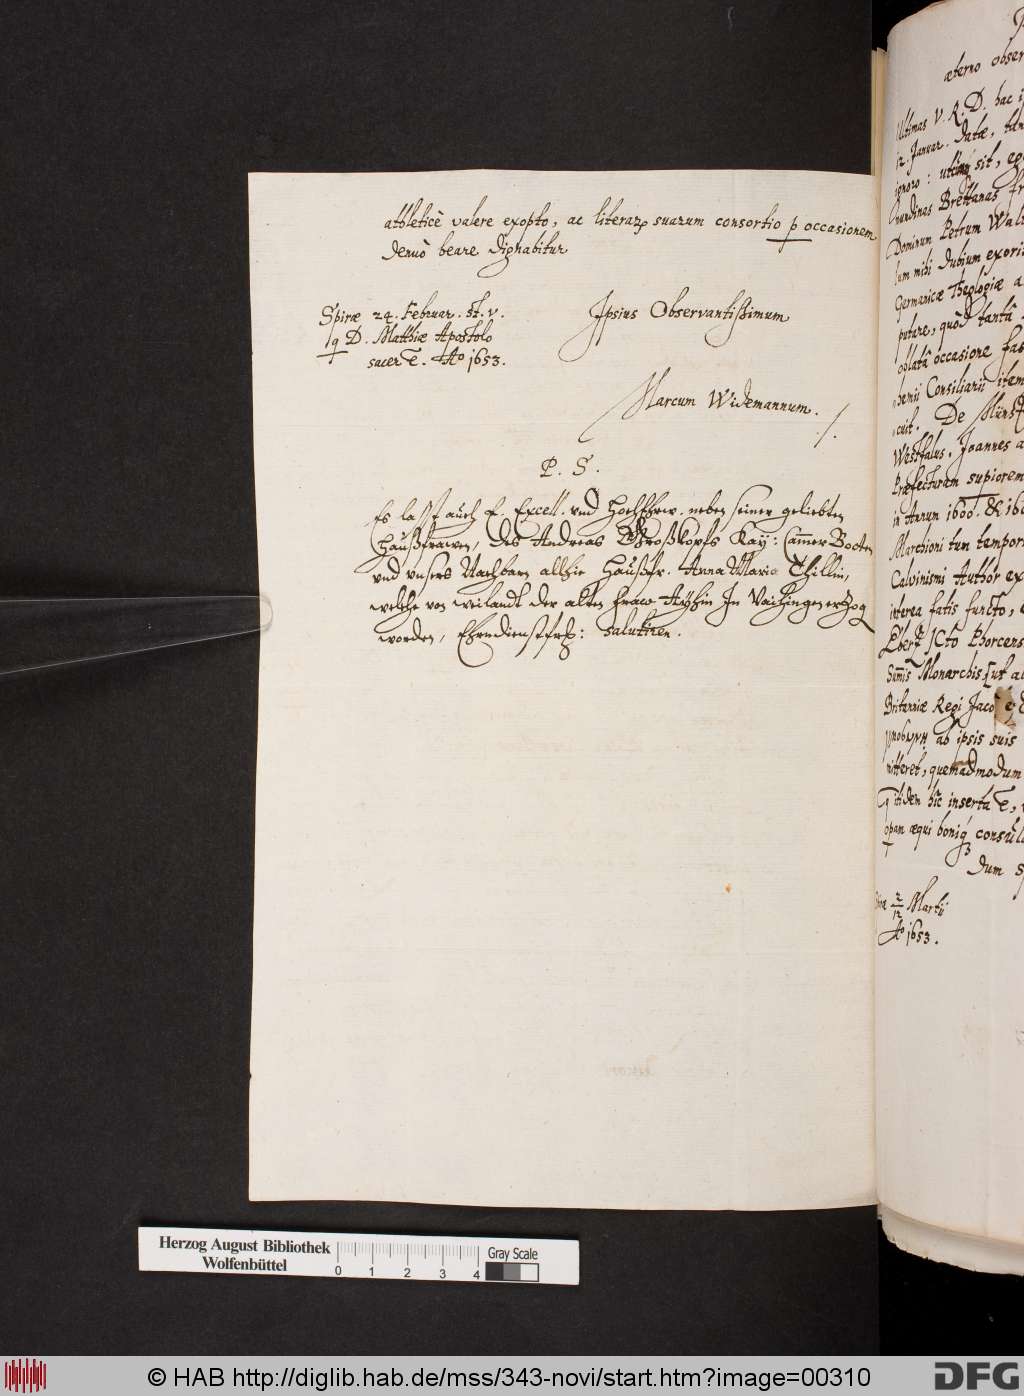 athleticè valere exopto, ac literarꝝ suarum consortio ꝑ occasionem
denuò beare dignabitur
Spiræ 24. Februar. st. v.
q D. Matthiæ Apostolo
sacer ē. Aō 1653.
Ipsius Observantißimum
Marcum Widemannum. /.
P. S.
Es lasst auch E. Excell. vnd Hochehrw. neben seiner geliebten
Haußfrawen, des Andreas Großkopfs Kay: Cam̄er Botten
vnd vnsers Nachbarn allhie Haußfr. Anna Maria Thillin,
welche von weilandt der alten fraw in Vaihingen erzog
worden, Ehrndienstfrl: salutiren.
æterno obser
Ultimas V. R. D. hac
12. Januar. datæ, tan
ignoro: sit, eg
nundinas Brettanas fr
Dominum Petrum Wal
tum mihi dubium exori
Germanicæ Theologiæ a
putare, quòd tantâ
oblatâ occasione fas
hemii Consiliarii item
cuit. De Münst
Westfalus, Joannes a
Præfecturam supiorem
in Annum 1600. & 160
Marchioni tum tempor
Calvinismi Author ex
interea fatis functo,
JCto Phorcens
Sum̄is Monarchis ut a
Britanniæ Regi Jaco
ab ipsis suis
mitteret, quemadmodum
itidem hic inserta ē,
opam æqui boniq consul
dum
2/12 Martii
Aō 1653.
Herzog August Bibliothek
Wolfenbüttel
0 1 2 3 4
Gray Scale
© HAB http://diglib.hab.de/mss/343-novi/start.htm?image=00310
DFG